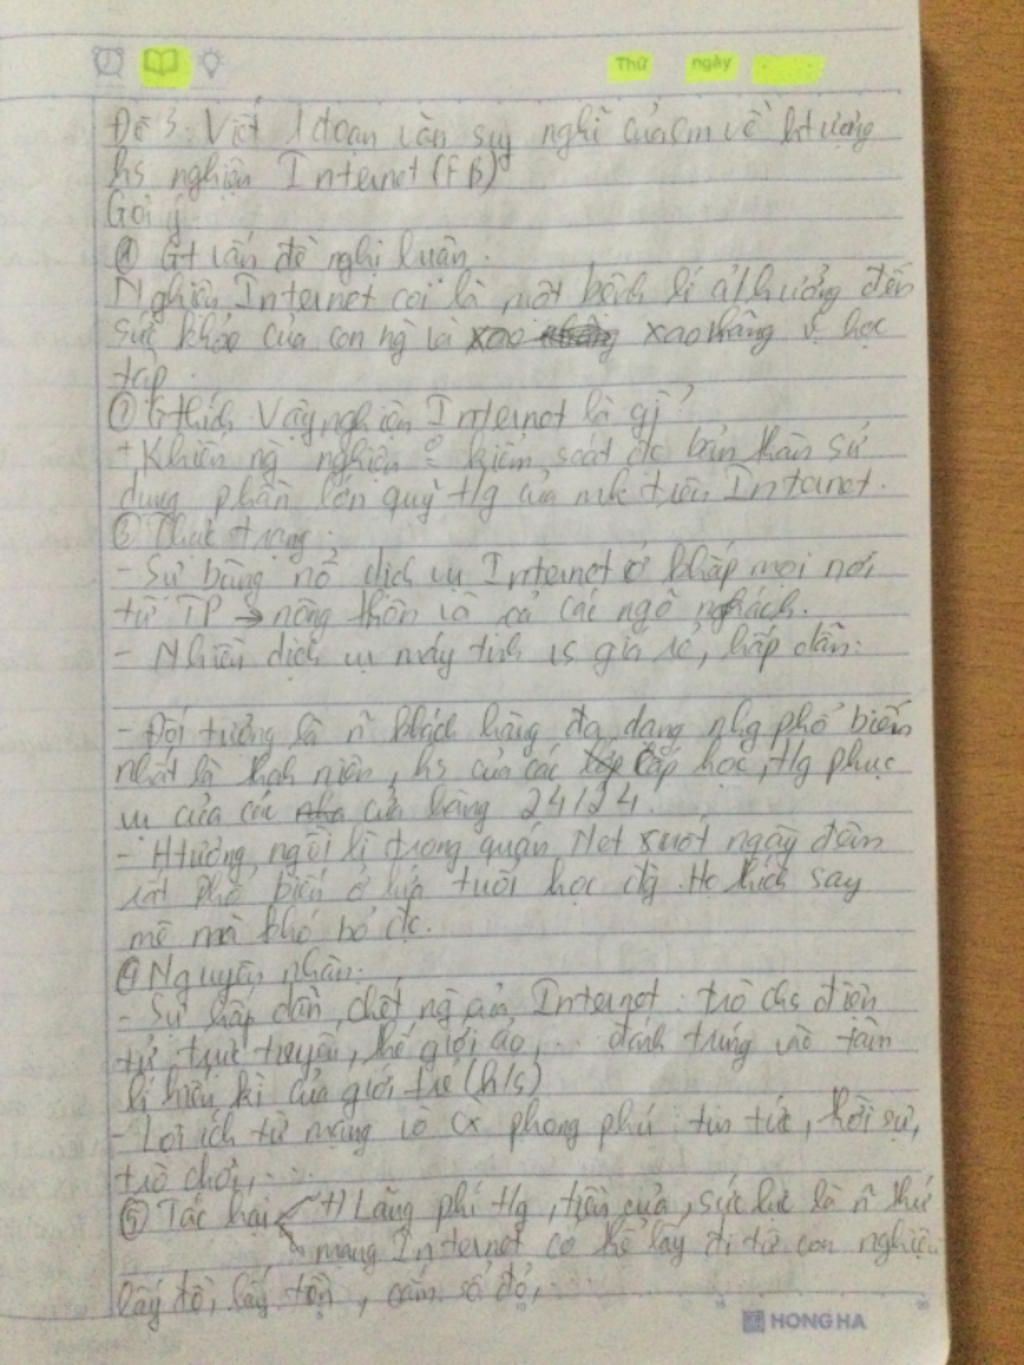 Thứ ngày
Đề 3: Viết 1 đoạn văn suy nghĩ của em về htượng
hs nghiện Internet (FB)
Gợi ý:
① Gt vấn đề nghị luận.
Nghiện Internet coi là một bệnh lí ả/hưởng đến
sức khỏe của con ng và xao nhãng v học
tập.
Gthích Vậy nghiện Internet là gì?
+ Khiến ng nghiện kiểm soát đc bản thân sử
dụng phần lớn quỹ t/g của mk trên Internet.
③ Thực trạng:
- Sự bùng nổ dịch vụ Internet ở khắp mọi nơi
từ TP → nông thôn và cả các ngõ ngách.
- Nhiều dịch vụ máy tính vs giá rẻ, hấp dẫn:
- Đối tượng là n khách hàng đa dạng nhg phổ biến
nhất là thah niên, hs của các cấp học, t/g phục
vụ của các cửa hàng 24/24.
- Htượng ngồi lì trong quán Net suốt ngày đêm
rất phổ biến ở lứa tuổi học đg. Họ thích say
mê mà khó bỏ đc.
④ Nguyên nhân:
- Sự hấp dẫn, chết ng của Internet: trò chs điện
tử, trực tuyến, thế giới ảo, ... đánh trúng vào tâm
lí hiếu kì của giới trẻ (h/s)
- Lợi ích từ mạng vô cx phong phú: tin tức, thời sự,
trò chơi, ...
⑤ Tác hại +) Lãng phí t/g, tiền của, sức lực là n thứ
mạng Internet có thể lấy đi từ con nghiện
lấy đồ, lấy tiền, cắm sổ đỏ, ...
HONG HA